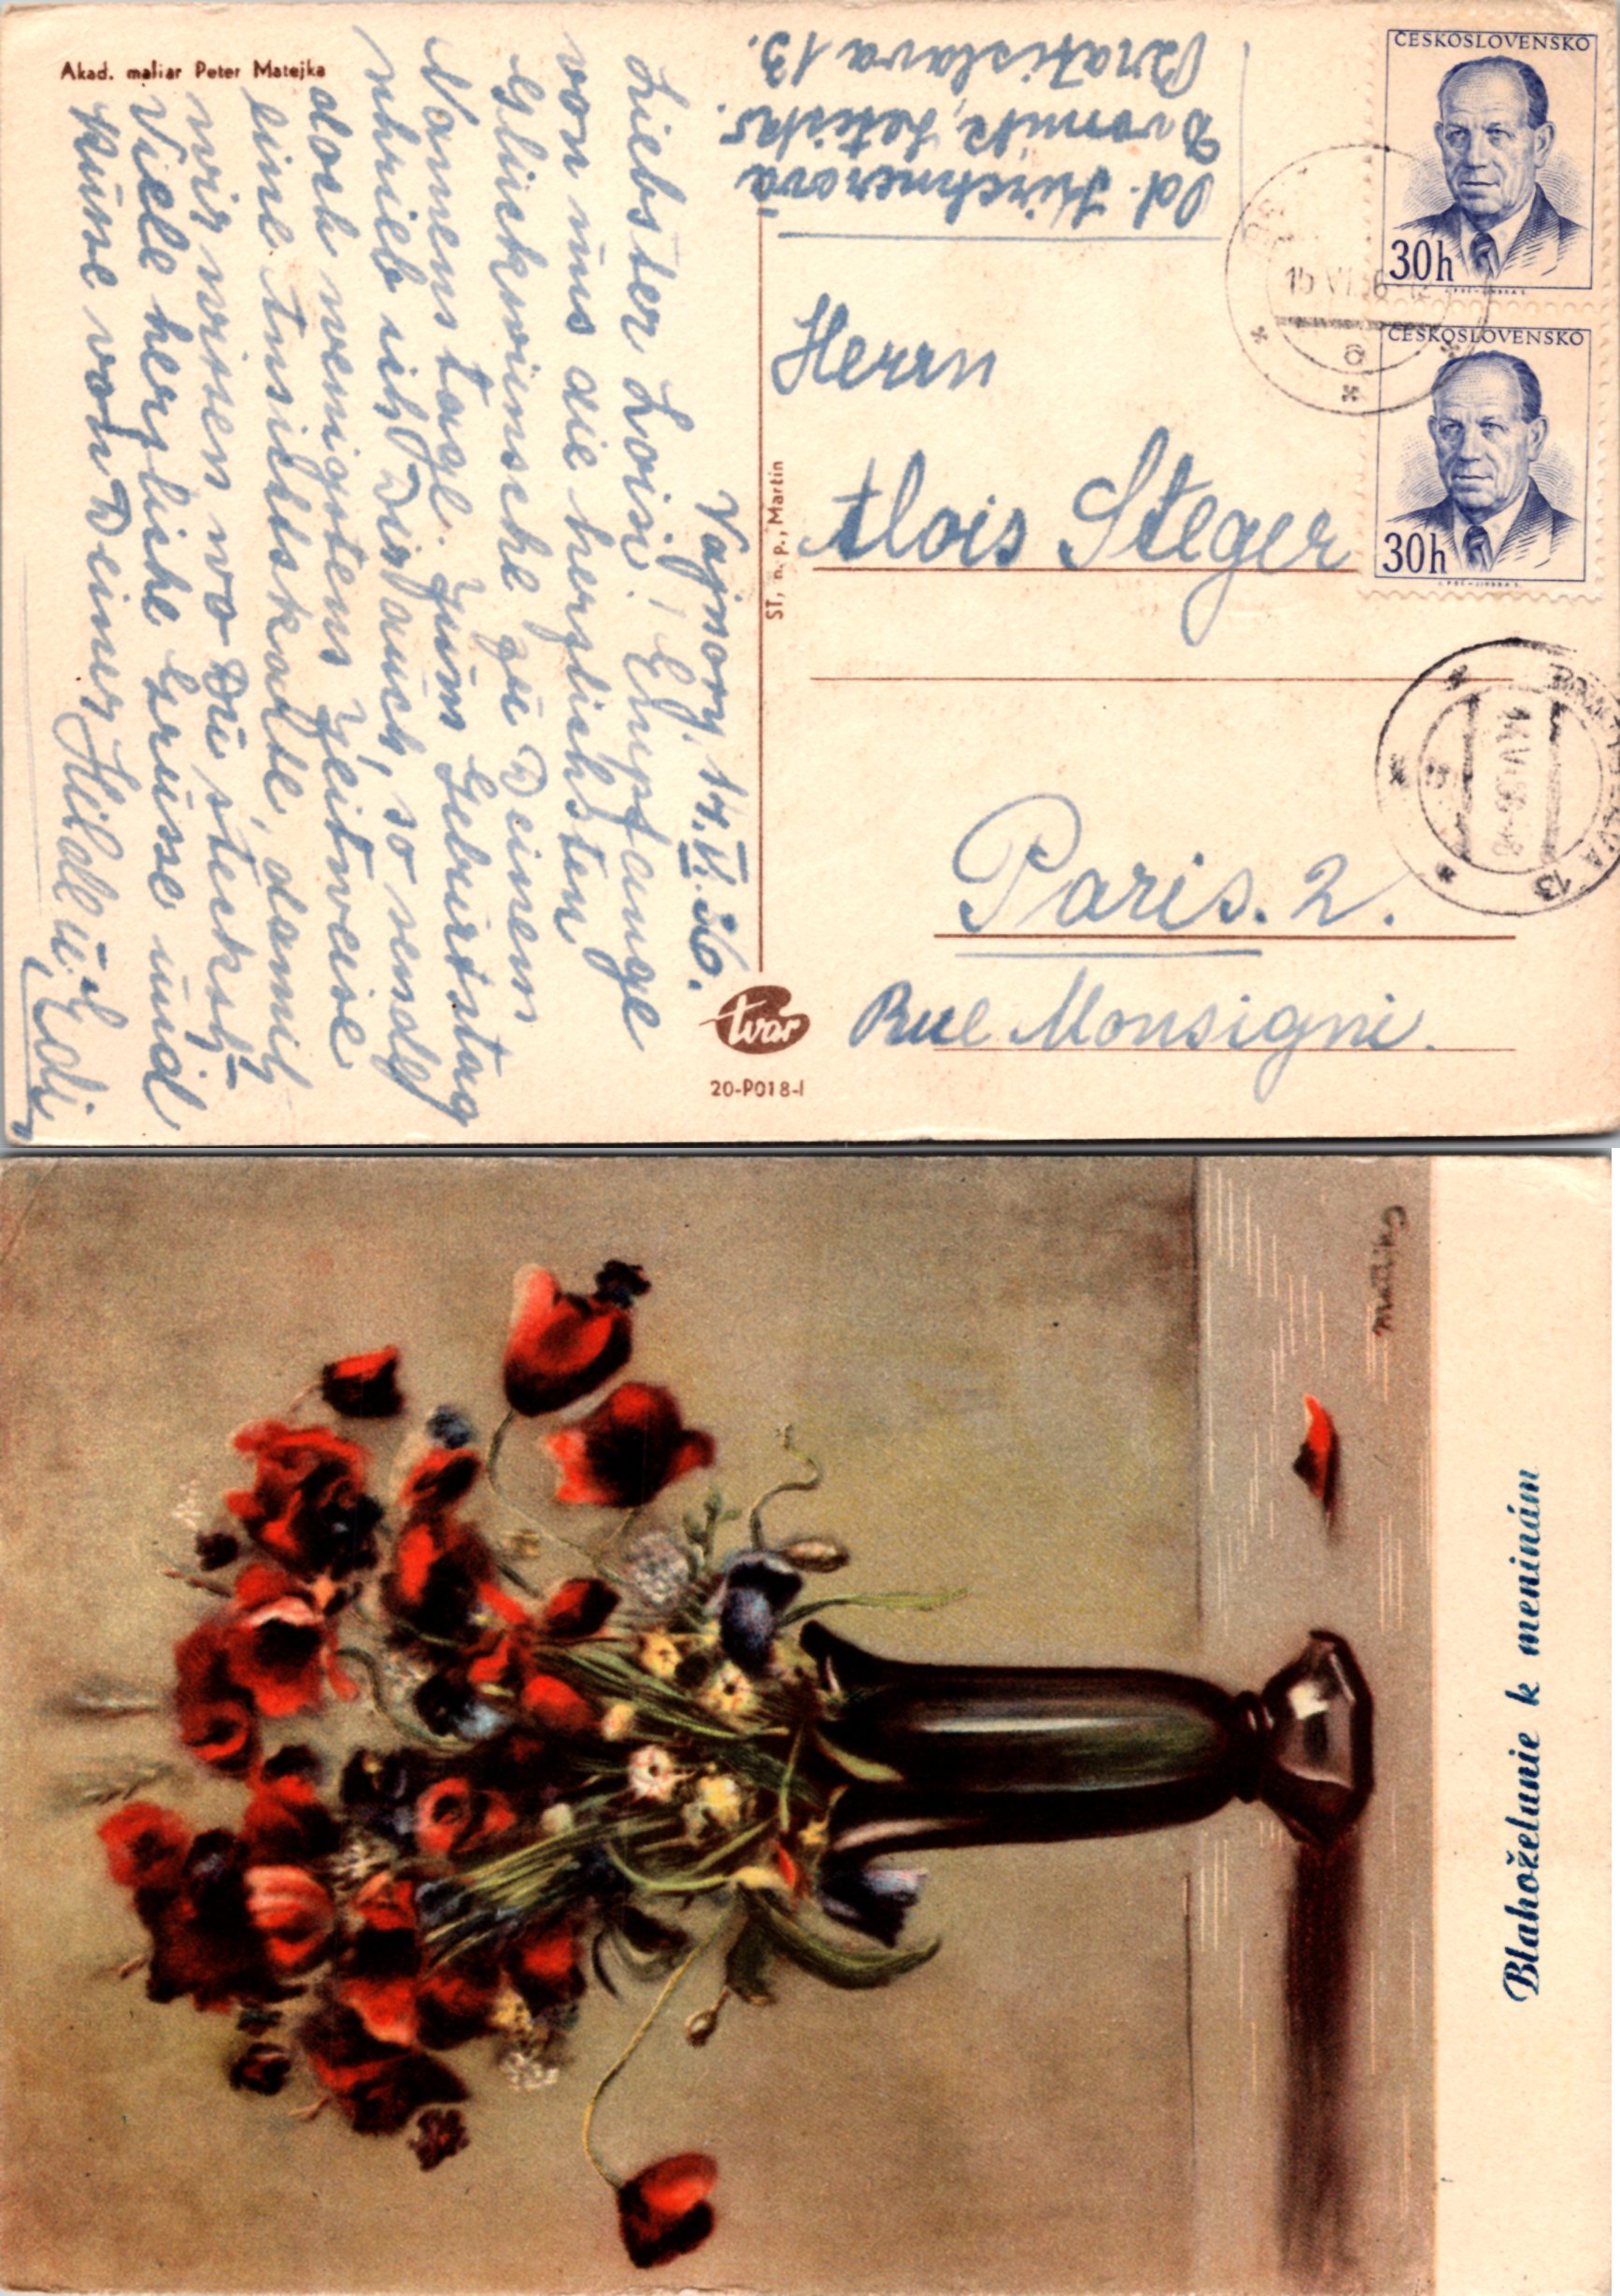 Akad. maliar Peter Matejka
Vajnory, 14.VI.56.
Liebster Loisi! Empfange
von uns die herzlichsten
Glückwünsche zu Deinem
Namenstage. Zum Geburtstag
schrieb ich Dir auch, so sende
doch wenigstens zeitweise
eine Ansichtskarte, damit
wir wissen wo Du steckst.
Viele herzliche Grüsse und
Küsse von Deiner Hilde u. Edi
Od. Kirchnerová
Dvornik, Letisko.
Bratislava 13.
ČESKOSLOVENSKO
30h
ČESKOSLOVENSKO
30h
15.VI.56
14.VI.56-18
13
Herrn
Alois Steger
Paris. 2.
Rue Monsigni.
ST, n. p., Martin
tvar
20-P018-I
Matejka
Blahoželanie k meninám